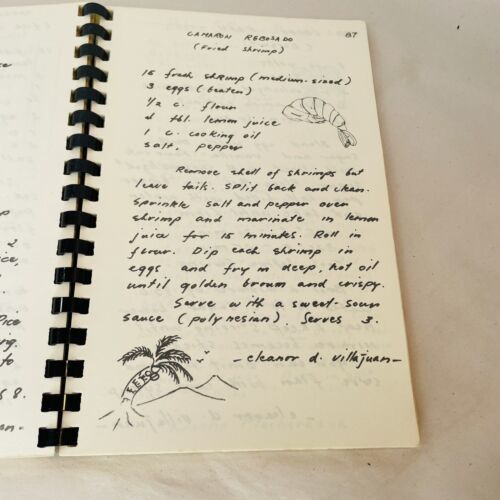 87
CAMARON REBOSADO
(Fried shrimp)
15 fresh shrimp (medium-sized)
3 eggs (beaten)
1/2 c. flour
tbl. lemon juice
1 c. cooking oil
salt, pepper
Remove shell of shrimps but
leave tails. Split back and clean.
Sprinkle salt and pepper over
shrimp and marinate in lemon
juice for 15 minutes. Roll in
flour. Dip each shrimp in
eggs and fry in deep, hot oil
until golden brown and crispy.
Serve with a sweet-sour
sauce (polynesian). Serves 3.
-eleanor d. villajuan-